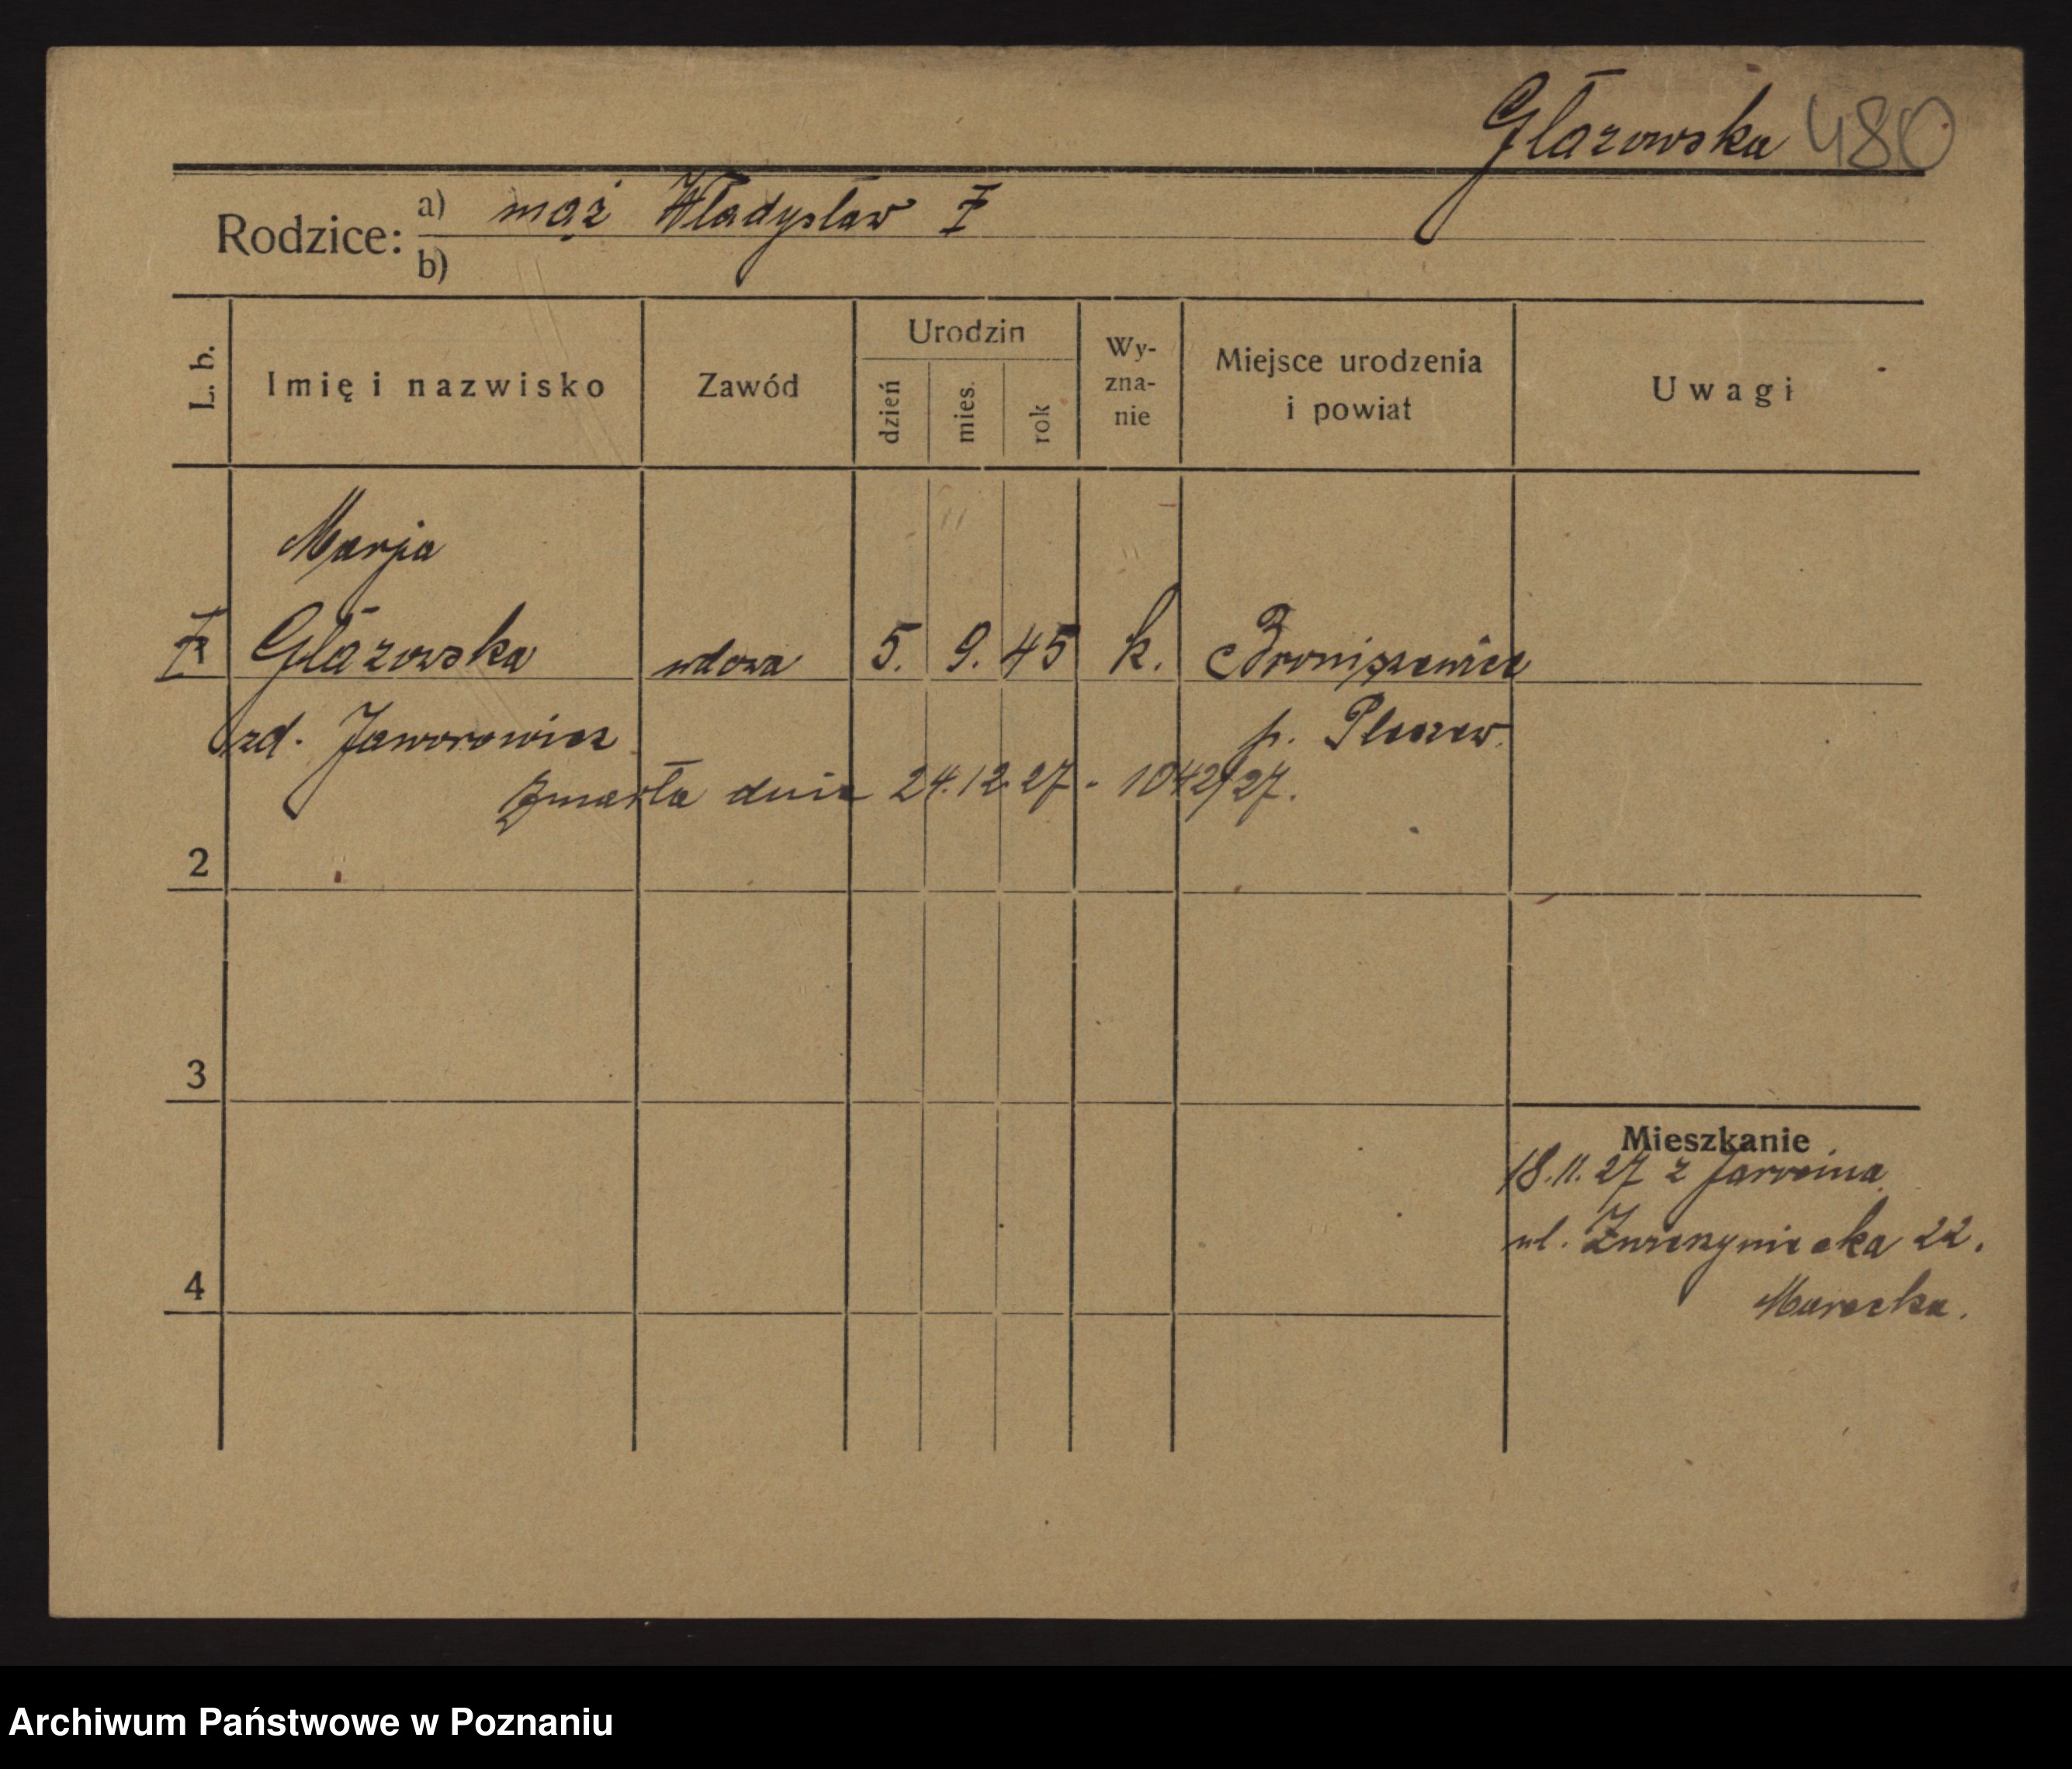 Głazowska 480
Rodzice: a) mąż Władysław I
b)
L. b. Imię i nazwisko Zawód Urodzin dzień mies. rok Wy-zna-nie Miejsce urodzenia i powiat Uwagi
Marja
Głazowska wdowa 5. 9. 45 k. Broniszewice
zd. Jaworowicz p. Pleszew.
Zmarła dnia 24.12.27 - 1042/27.
2
3
Mieszkanie
18.11.27 z Jarocina
ul. Zwierzyniecka 22.
4
Marecka.
Archiwum Państwowe w Poznaniu